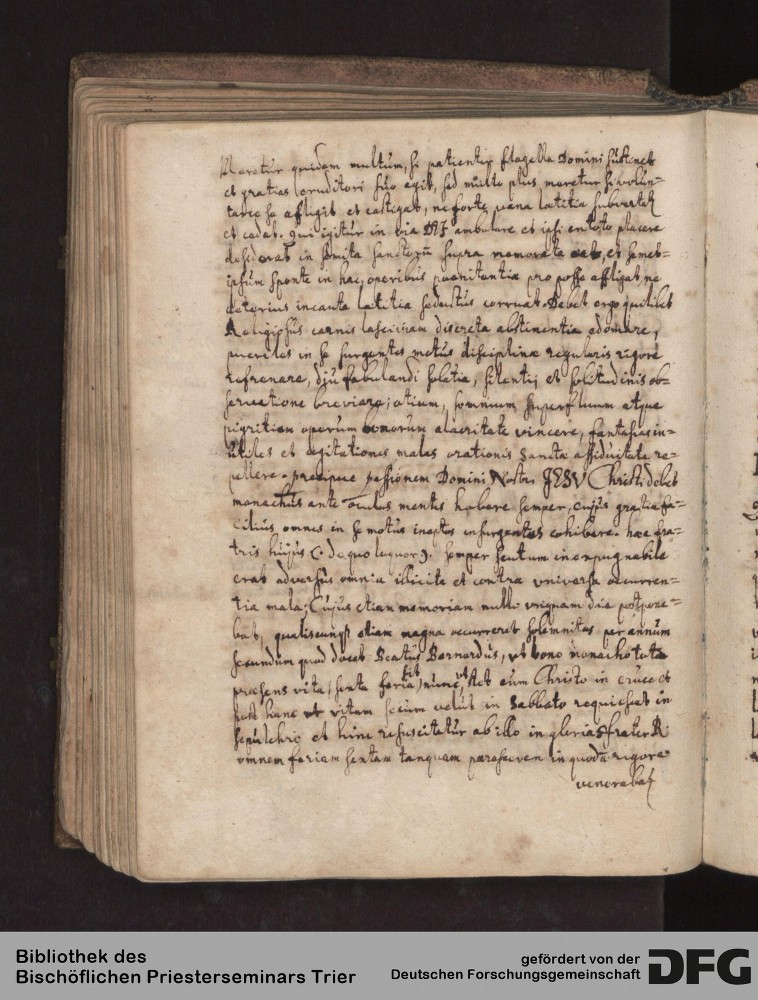 Meretur quidem multum, si patienter flagella Domini sustinet
et gratias eruditori suo agit, sed multo plus meretur si volun=
tarie se affligit et castigat, ne forte vana laetitia subvertat
et cadat. qui igitur in via DEI ambulare et ipsi in toto placere
desiderat in semita sanctorū supra memorata eat, et semet=
ipsum sponte in hac, operibus poenitentiae pro posse affligat, ne
deterius incauta laetitia seductus corruat. Debet ergo quilibet
Religiosus carnis lasciviam discreta abstinentia edomare,
pueriles in se surgentes motus disciplinae regularis rigore
refrenare, diu fabulandi solatia, silentij et solitudinis ob=
servatione breviare; otium, somnium superfluum atque
pigritiam operum bonorum alacritate vincere, fantasias in=
utiles et cogitationes malas orationis sanctae assiduitate re=
pellere. praecipue passionem Domini Nostri JESV Christi debet
monachus ante oculos mentis habere semper, cujus gratia fa=
cilius omnes in se motus ineptos insurgentes cohibere. haec fra=
tris hujus C. de quo loquor semper scutum inexpugnabile
erat adversus omnia illicita et contra universa occurren=
tia mala; Cujus etiam memoriam nullo unquam die postpone=
bat, etiam magna occurreret solemnitas per annum
secundum quod docet Beatus Bernardus, ut bono monacho tota
praesens vita, sexta feria sit, nunc ut stet cum Christo in cruce et
post hanc vitam secum velut in Sabbato requiescat in
sepulchro et hinc resuscitatur ab illo in gloria frater R
omnem feriam sextam tanquam parasceven in quodā rigore
venerabat
Bibliothek des
Bischöflichen Priesterseminars Trier
gefördert von der
Deutschen Forschungsgemeinschaft
DFG